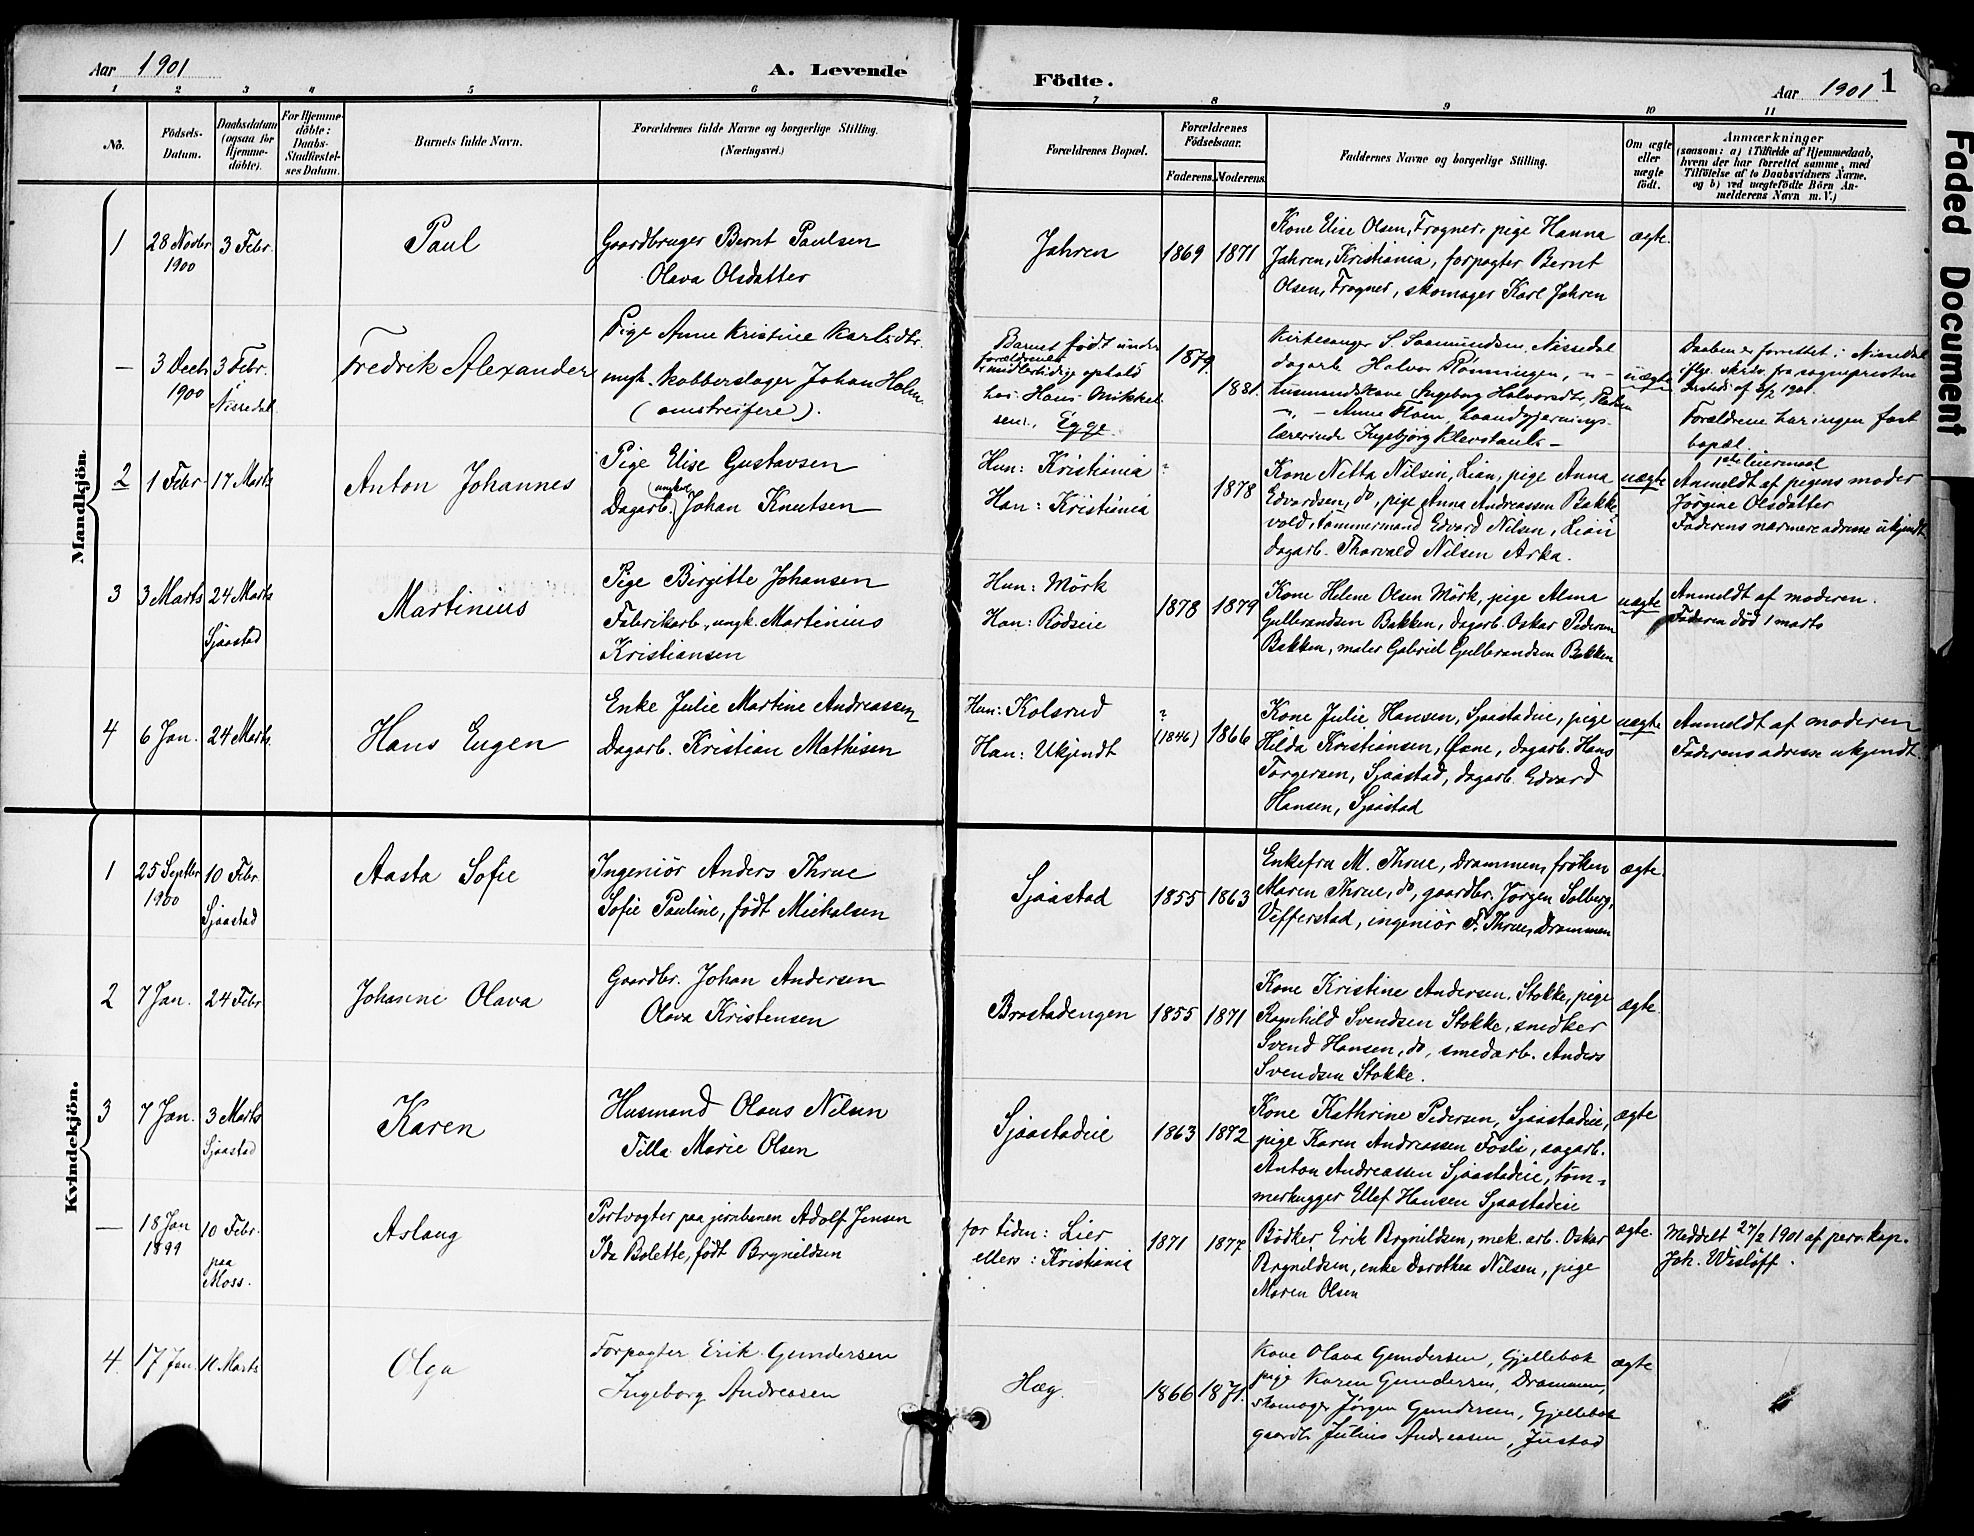 Aar 1901
A. Levende
Födte.
Aar 1901
1
1 2 3 4 5 6 7 8 9 10 11
No.
Födsels-
Datum.
Daabsdatum
(ogsaa for
Hjemme-
döbte).
For Hjemme-
döbte:
Daabs-
Stadfæstel-
ses Datum.
Barnets fulde Navn.
Forældrenes fulde Navne og borgerlige Stilling.
(Næringsvei.)
Forældrenes Bopæl.
Forældrenes
Födselsaar.
Faderens.
Moderens.
Faddernes Navne og borgerlige Stilling.
Om ægte
eller
uægte
födt.
Anmærkninger
(saasom: a) i Tilfælde af Hjemmedaab,
hvem der har forrettet samme, med
Tilföielse af to Daabsvidners Navne.
og b) ved uægtefödte Börn An-
melderens Navn m. V.)
Mandkjön.
1
28 Novbr
1900
3 Febr.
Paul
Gaardbruger Bernt Paulsen
Olava Olsdatter
Jahren
1869
1871
Kone Elise Olsen, Frogner, pige Hanna
Jahren, Kristiania, forpagter Bernt
Olsen, Frogner, skomager Karl Jahren
ægte.
—
3 Decb
1900
3 Febr.
i
Nissedal
Fredrik Alexander
Pige Anne Kristine Karlsdtr.
ungk. Kobberslager Johan Holm
(omstreifere).
Barnet født under
forældrenes
midlertidige ophold
hos Hans Mikkel
sen, Egge
1879
1881
Kirkesanger S. Saamundsen, Nissedal
dagarb. Halvor Rønningen, — " —
husmandskone Ingeborg Halvorsdtr,
— " — Anne Flom, haandgjernings-
lærerinde Ingebjørg Klevstaul —
uægte
Daaben er forrettet i Nissedal
iflg. skriv. fra sognepresten
sersteds af 5/2 1901.
Forældrene har ingen fast
bopæl.
2
1 Febr.
17 Marts
Anton Johannes
Pige Elise Gustavsen
Dagarb. (ungka) Johan Knutsen
Hun: Kristiania
Han: Kristiania
?
1878
Kone Netta Nilsen, Lian, pige Anna
Edvardsen, do, pige Anna Andreassen Bakke
vold, tømmermand Edvard Nilsen, Lian
dagarb. Thorvald Nilsen Arka.
uægte
1ste leiermaal
Anmeldt af pigens moder
Jørgine Olsdatter
Faderens nærmere adresse ukjendt
3
3 Marts
24 Marts
Sjaastad
Martinius
Pige Birgitte Johansen
Fabrikarb., ungk. Martinius
Kristiansen
Hun: Mörk
Han: Rödseie
1878
1879
Kone Helene Olsen Mörk, pige Alma
Gulbrandsen Bakken, dagarb. Oskar Pedersen
Bakken, maler Gabriel Gulbrandsen Bakken
uægte
Anmeldt af moderen.
Faderen död 1 marts
4
6 Jan.
24 Marts.
Hans Eugen
Enke Julie Martine Andreassen
Dagarb. Kristian Mathisen
Hun: Kolsrud
Han: Ukjendt
?
(1846)
1866
Kone Julie Hansen, Sjaastadeie, pige
Hilda Kristiansen, Øane, dagarb. Hans
Torgersen, Sjaastad, dagarb. Edvard
Hansen, Sjaastad
uægte
Anmeldt af moderen
Faderens adresse ukjendt.
Kvindekjön.
1
25 Septbr
1900
10 Febr
Sjaastad
Aasta Sofie
Ingeniör Anders Thrue
Sofie Pauline, født Michalsen
Sjaastad
1855
1863
Enkefru M. Thrue, Drammen, frøken
Maren Thrue, do, gaardbr. Jörgen Solberg,
Vefferstad, ingeniör F. Thrue, Drammen
ægte
2
7 Jan.
24 Febr
Johanne Olava
Gaardbr. Johan Andersen
Olava Kristensen
Brastadengen
1855
1871
Kone Kristine Andersen, Stokke, pige
Ragnhild Svendsen Stokke, snedker
Svend Hansen, do, smedarb. Anders
Svendsen Stokke.
ægte.
3
7 Jan.
3 Marts
Sjaastad
Karen
Husmand Olaus Nilsen
Tilla Marie Olsen
Sjaastadeie
1863
1872
Kone Kathrine Pedersen, Sjaastadeie,
pige Karen Andreassen Fosli, sagarb.
Anton Andreassen Sjaastadeie, töm-
merhugger Ellef Hansen Sjaastadeie
ægte
—
18 Jan
1899
10 Febr.
paa
Moss.
Aslaug
Portvogter paa jernbanen Adolf Jensen
Ida Bolette, født Brynildsen
for tiden: Lier
ellers: Kristiania
1871
1877
Bødker Erik Brynildsen, mek. arb. Oskar
Brynildsen, enke Dorothea Nilsen, pige
Maren Olsen
ægte.
Meddelt 27/2 1901 af pers. kap.
Joh. Wisløff.
4
17 Jan.
10 Marts
Olga
Forpagter Erik Gundersen
Ingeborg Andreasen
Hæg.
1866
1871.
Kone Olava Gundersen, Gjellebæk
pige Karen Gundersen, Drammen,
skomager Jörgen Gundersen, Gjellebæk
gaardbr Julius Andreasen, Justad
ægte
Faded Document